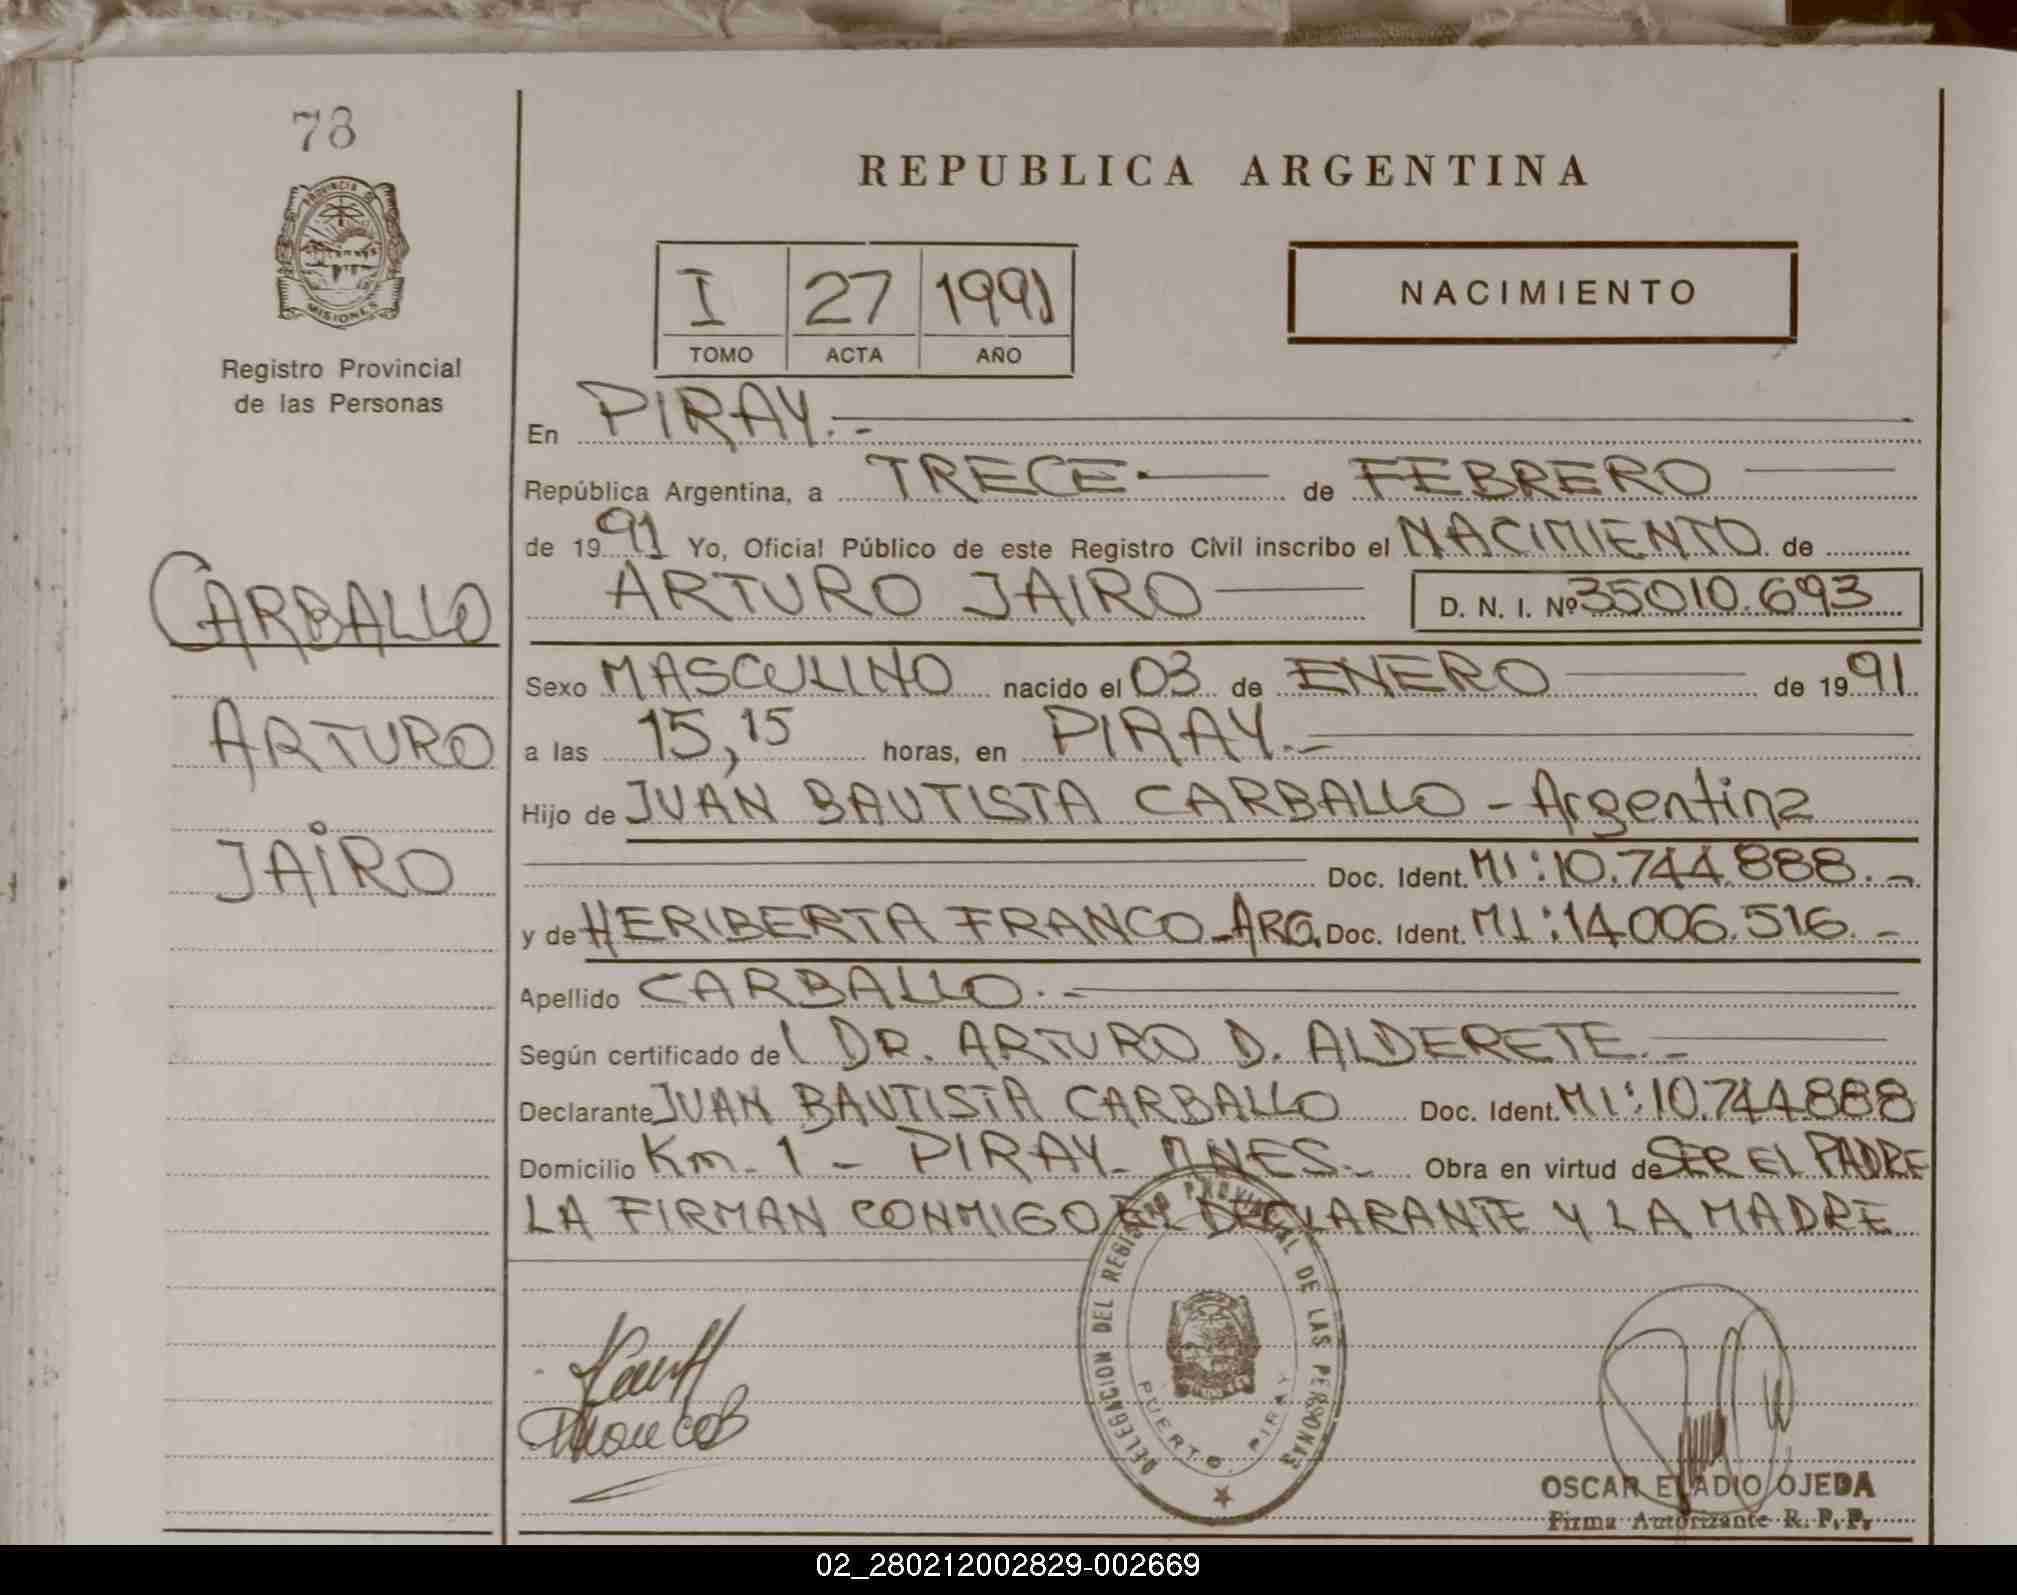 78
PROVINCIA DE
MISIONES
Registro Provincial
de las Personas
CARBALLO
ARTURO
JAIRO
REPUBLICA ARGENTINA
I 27 1991
TOMO ACTA AÑO
NACIMIENTO
En PIRAY.-
República Argentina, a TRECE.- de FEBRERO
de 1991 Yo, Oficial Público de este Registro Civil inscribo el NACIMIENTO de
ARTURO JAIRO D. N. I. Nº 35010.693
Sexo MASCULINO nacido el 03 de ENERO de 1991
a las 15,15 horas, en PIRAY.-
Hijo de JUAN BAUTISTA CARBALLO - Argentina
Doc. Ident. MI:10.744.888.-
y de HERIBERTA FRANCO - ARG. Doc. Ident. MI:14.006.516.-
Apellido CARBALLO.-
Según certificado de DR. ARTURO D. ALDERETE.-
Declarante JUAN BAUTISTA CARBALLO Doc. Ident. MI:10.744.888
Domicilio Km. 1 - PIRAY - MNES.- Obra en virtud de SER EL PADRE
LA FIRMAN CONMIGO EL DECLARANTE Y LA MADRE
DELEGACION DEL REGISTRO PROVINCIAL DE LAS PERSONAS
PUERTO PIRAY
OSCAR ELADIO OJEDA
Firma Autorizante R. P. P.
02_280212002829-002669